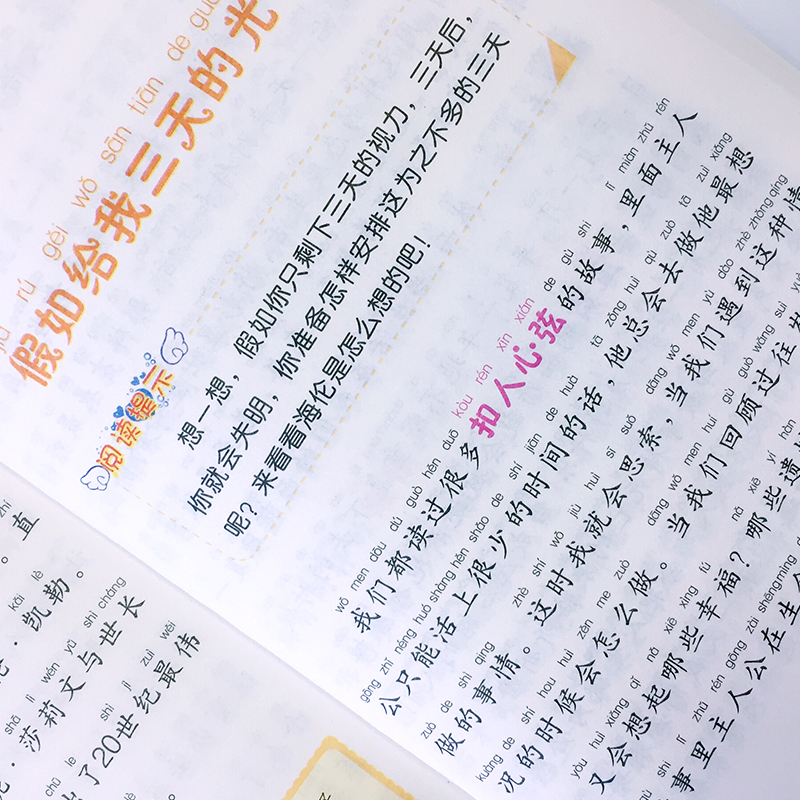 rú gěi wǒ sān tiān de
假如给我三天的光
阅读提示
想一想，假如你只剩下三天的视力，三天后，
你就会失明，你准备怎样安排这为之不多的三天
呢？来看看海伦是怎么想的吧！
wǒ men dōu dú guò hěn duō kòu rén xīn xián de gù shi lǐ miàn zhǔ rén
我们都读过很多扣人心弦的故事，里面主人
gōng zhǐ néng huó shàng hěn shǎo de shí jiān de huà tā zǒng huì qù zuò tā zuì xiǎng
公只能活上很少的时间的话，他总会去做他最想
zuò de shì qing zhè shí wǒ jiù huì sī suǒ dāng wǒ men yù dào zhè zhǒng qíng
做的事情。这时我就会思索，当我们遇到这种情
kuàng de shí hou huì zěn me zuò dāng wǒ men huí gù guò wǎng suì
况的时候会怎么做。当我们回顾过往岁
yòu huì xiǎng qǐ nǎ xiē xìng fú nǎ xiē yí hàn
又会想起哪些幸福？哪些遗
shì lǐ zhǔ rén gōng zài shēng mìng
事里主人公在生
直
kǎi lè
凯勒。
shā lì wén yǔ shì cháng
莎莉文与世长
shì jì zuì wěi
了20世纪最伟